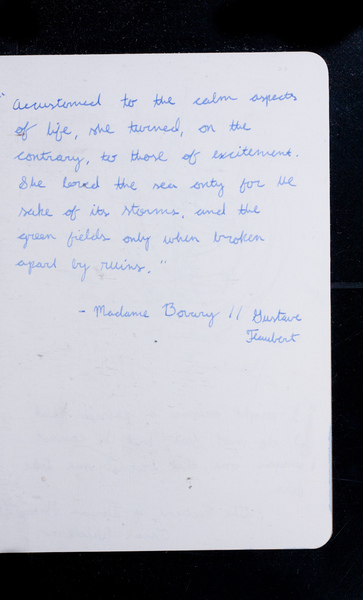 "Accustomed to the calm aspects
of life, she turned, on the
contrary, to those of excitement.
She loved the sea only for the
sake of its storms, and the
green fields only when broken
apart by ruins."
- Madame Bovary // Gustave
Flaubert